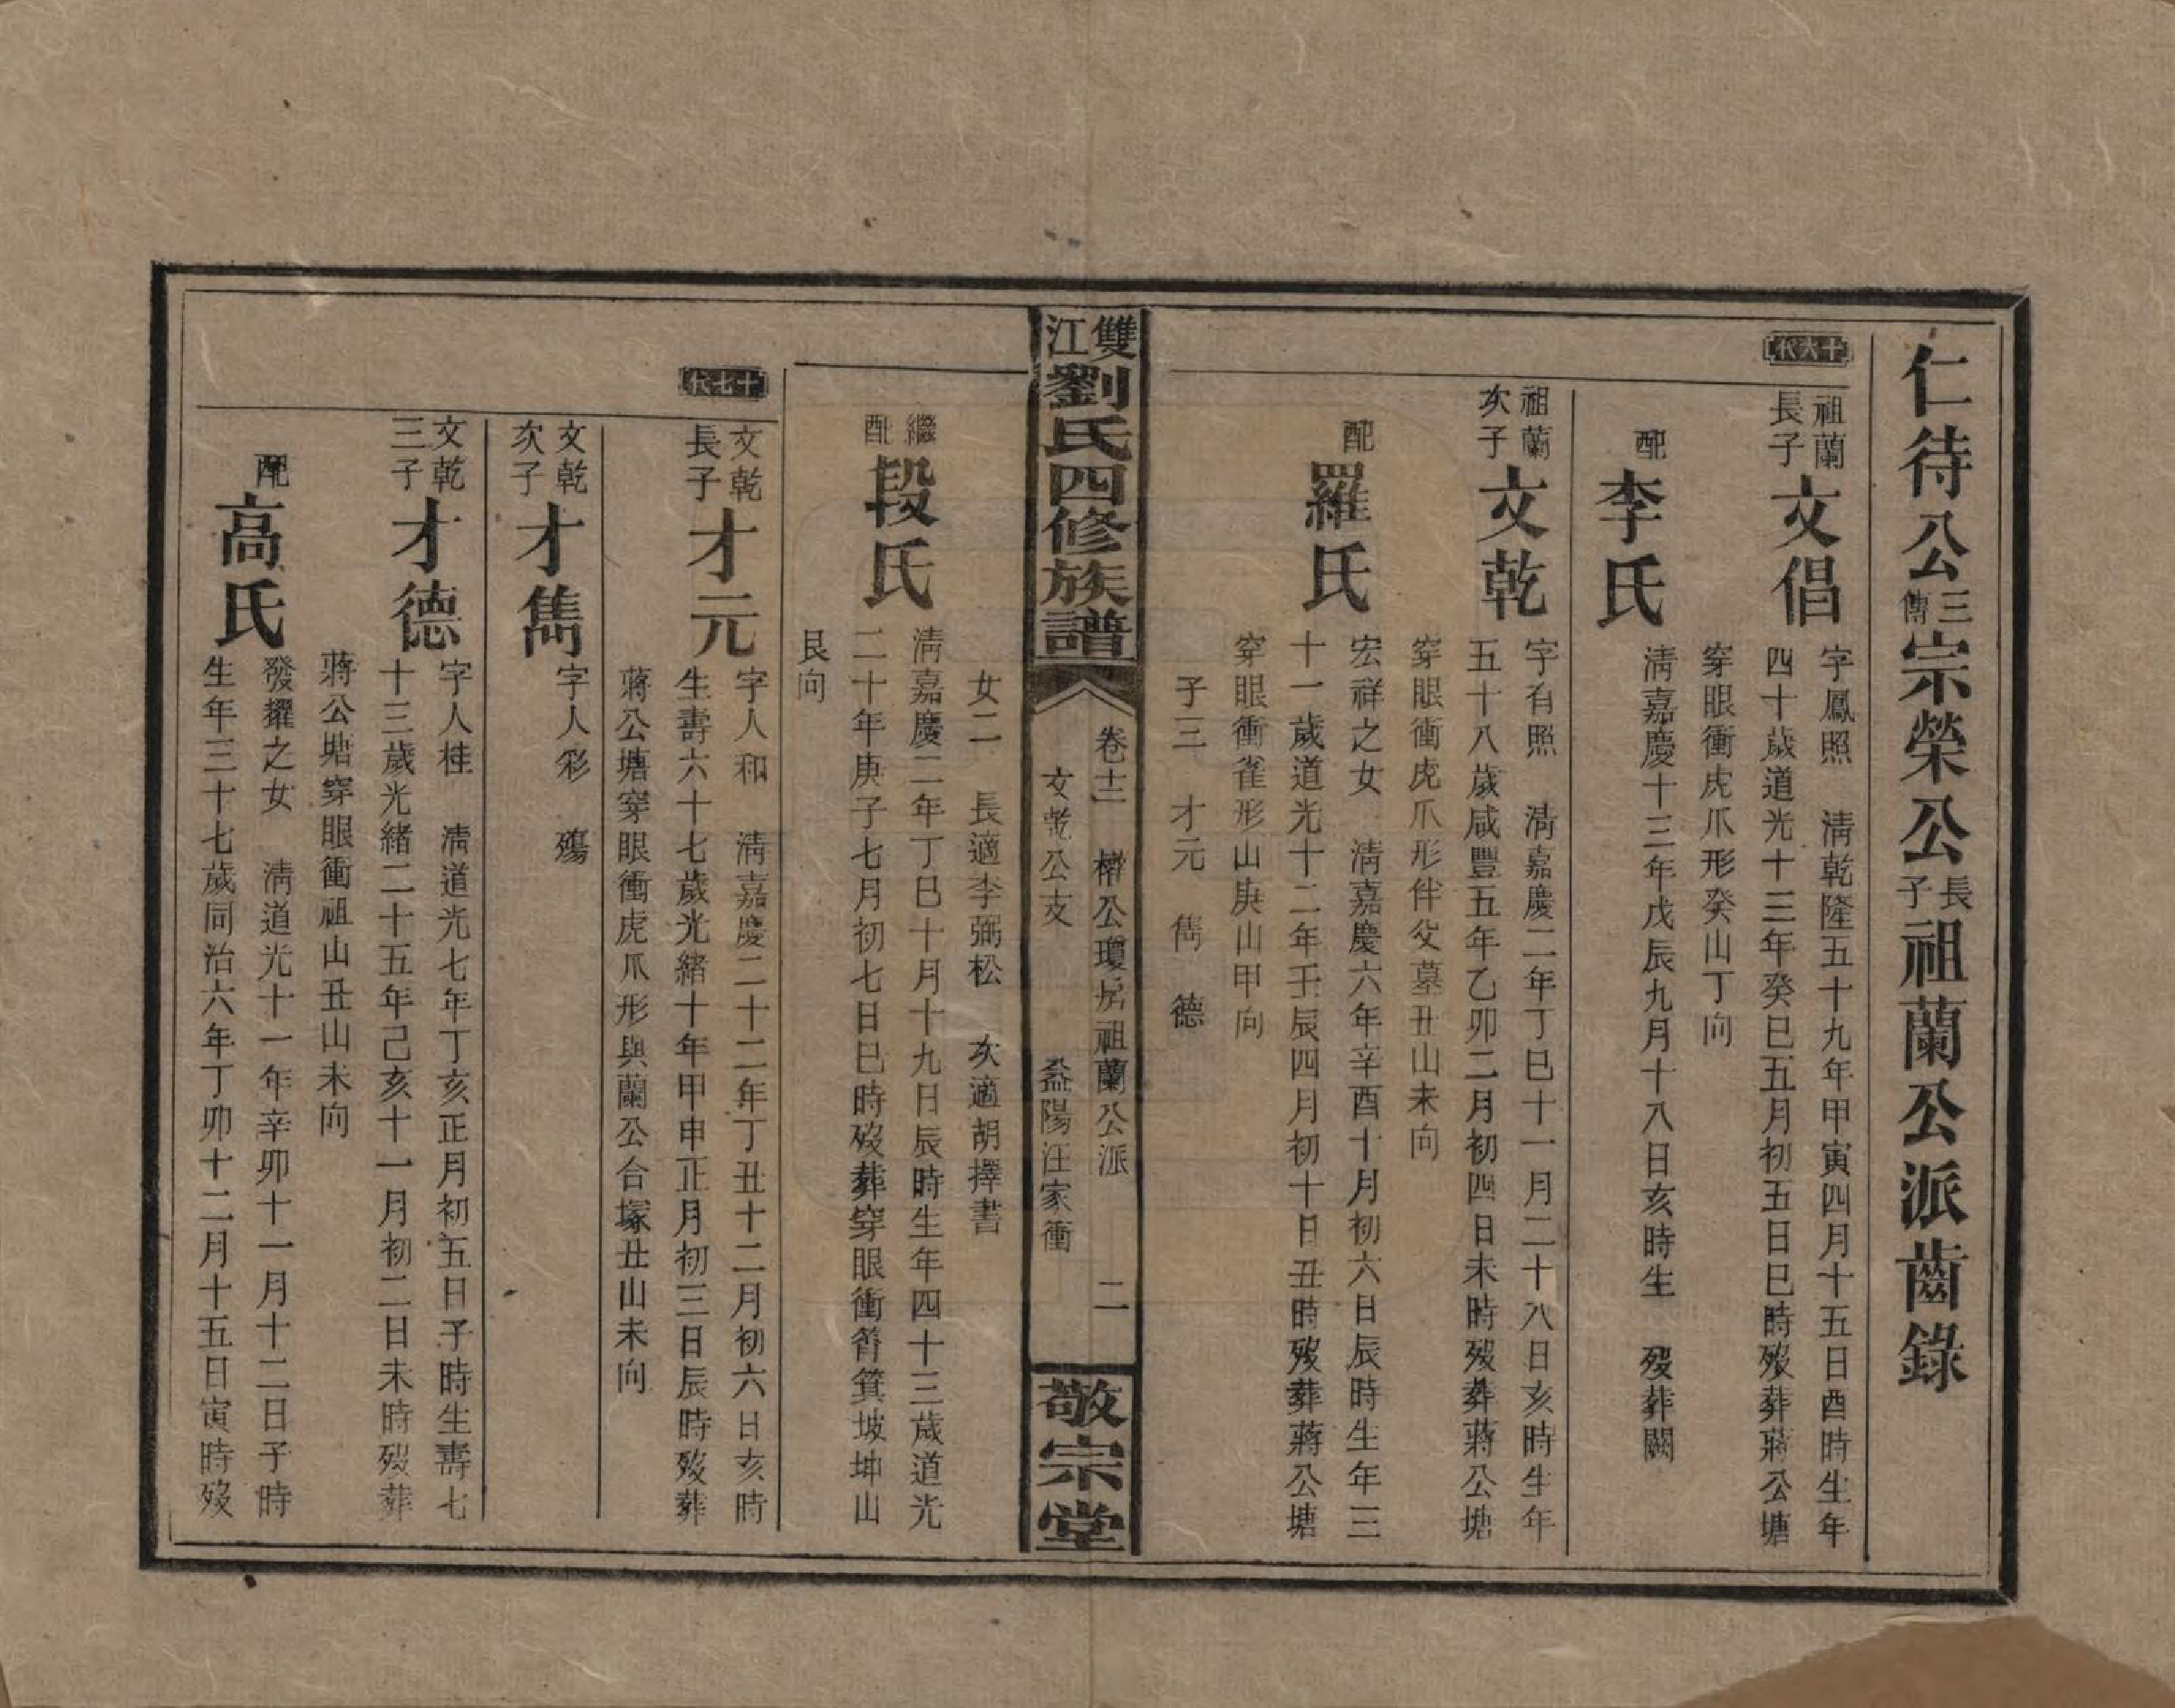 仁待公三傳宗榮公長子祖蘭公派齒錄
十六代
祖蘭長子文倡
字鳳照　清乾隆五十九年甲寅四月十五日酉時生年
四十歲道光十三年癸巳五月初五日巳時歿葬蔣公塘
穿眼衝虎爪形癸山丁向
配李氏
清嘉慶十三年戊辰九月十八日亥時生　歿葬闕
祖蘭次子文乾
字有照　清嘉慶二年丁巳十一月二十八日亥時生年
五十八歲咸豐五年乙卯二月初四日未時歿葬蔣公塘
穿眼衝虎爪形伴父墓丑山未向
配羅氏
宏祥之女　清嘉慶六年辛酉十月初六日辰時生年三
十一歲道光十二年壬辰四月初十日丑時歿葬蔣公塘
穿眼衝雀形山庚山甲向
子三　才元　儁　德
雙江劉氏四修族譜
卷十二　公瓊房祖蘭公派　二
文乾公支　益陽汪家衝
敬宗堂
女二　長適李弼松　次適胡擇書
繼配段氏
清嘉慶二年丁巳十月十九日辰時生年四十三歲道光
二十年庚子七月初七日巳時歿葬穿眼衝筲箕坡坤山
艮向
十七代
文乾長子才元
字人和　清嘉慶二十二年丁丑十二月初六日亥時
生壽六十七歲光緒十年甲申正月初三日辰時歿葬
蔣公塘穿眼衝虎爪形與蘭公合塚丑山未向
文乾次子才雋
字人彩　殤
文乾三子才德
字人桂　清道光七年丁亥正月初五日子時生壽七
十三歲光緒二十五年己亥十一月初二日未時歿葬
蔣公塘穿眼衝祖山丑山未向
配高氏
發擢之女　清道光十一年辛卯十一月十二日子時
生年三十七歲同治六年丁卯十二月十五日寅時歿